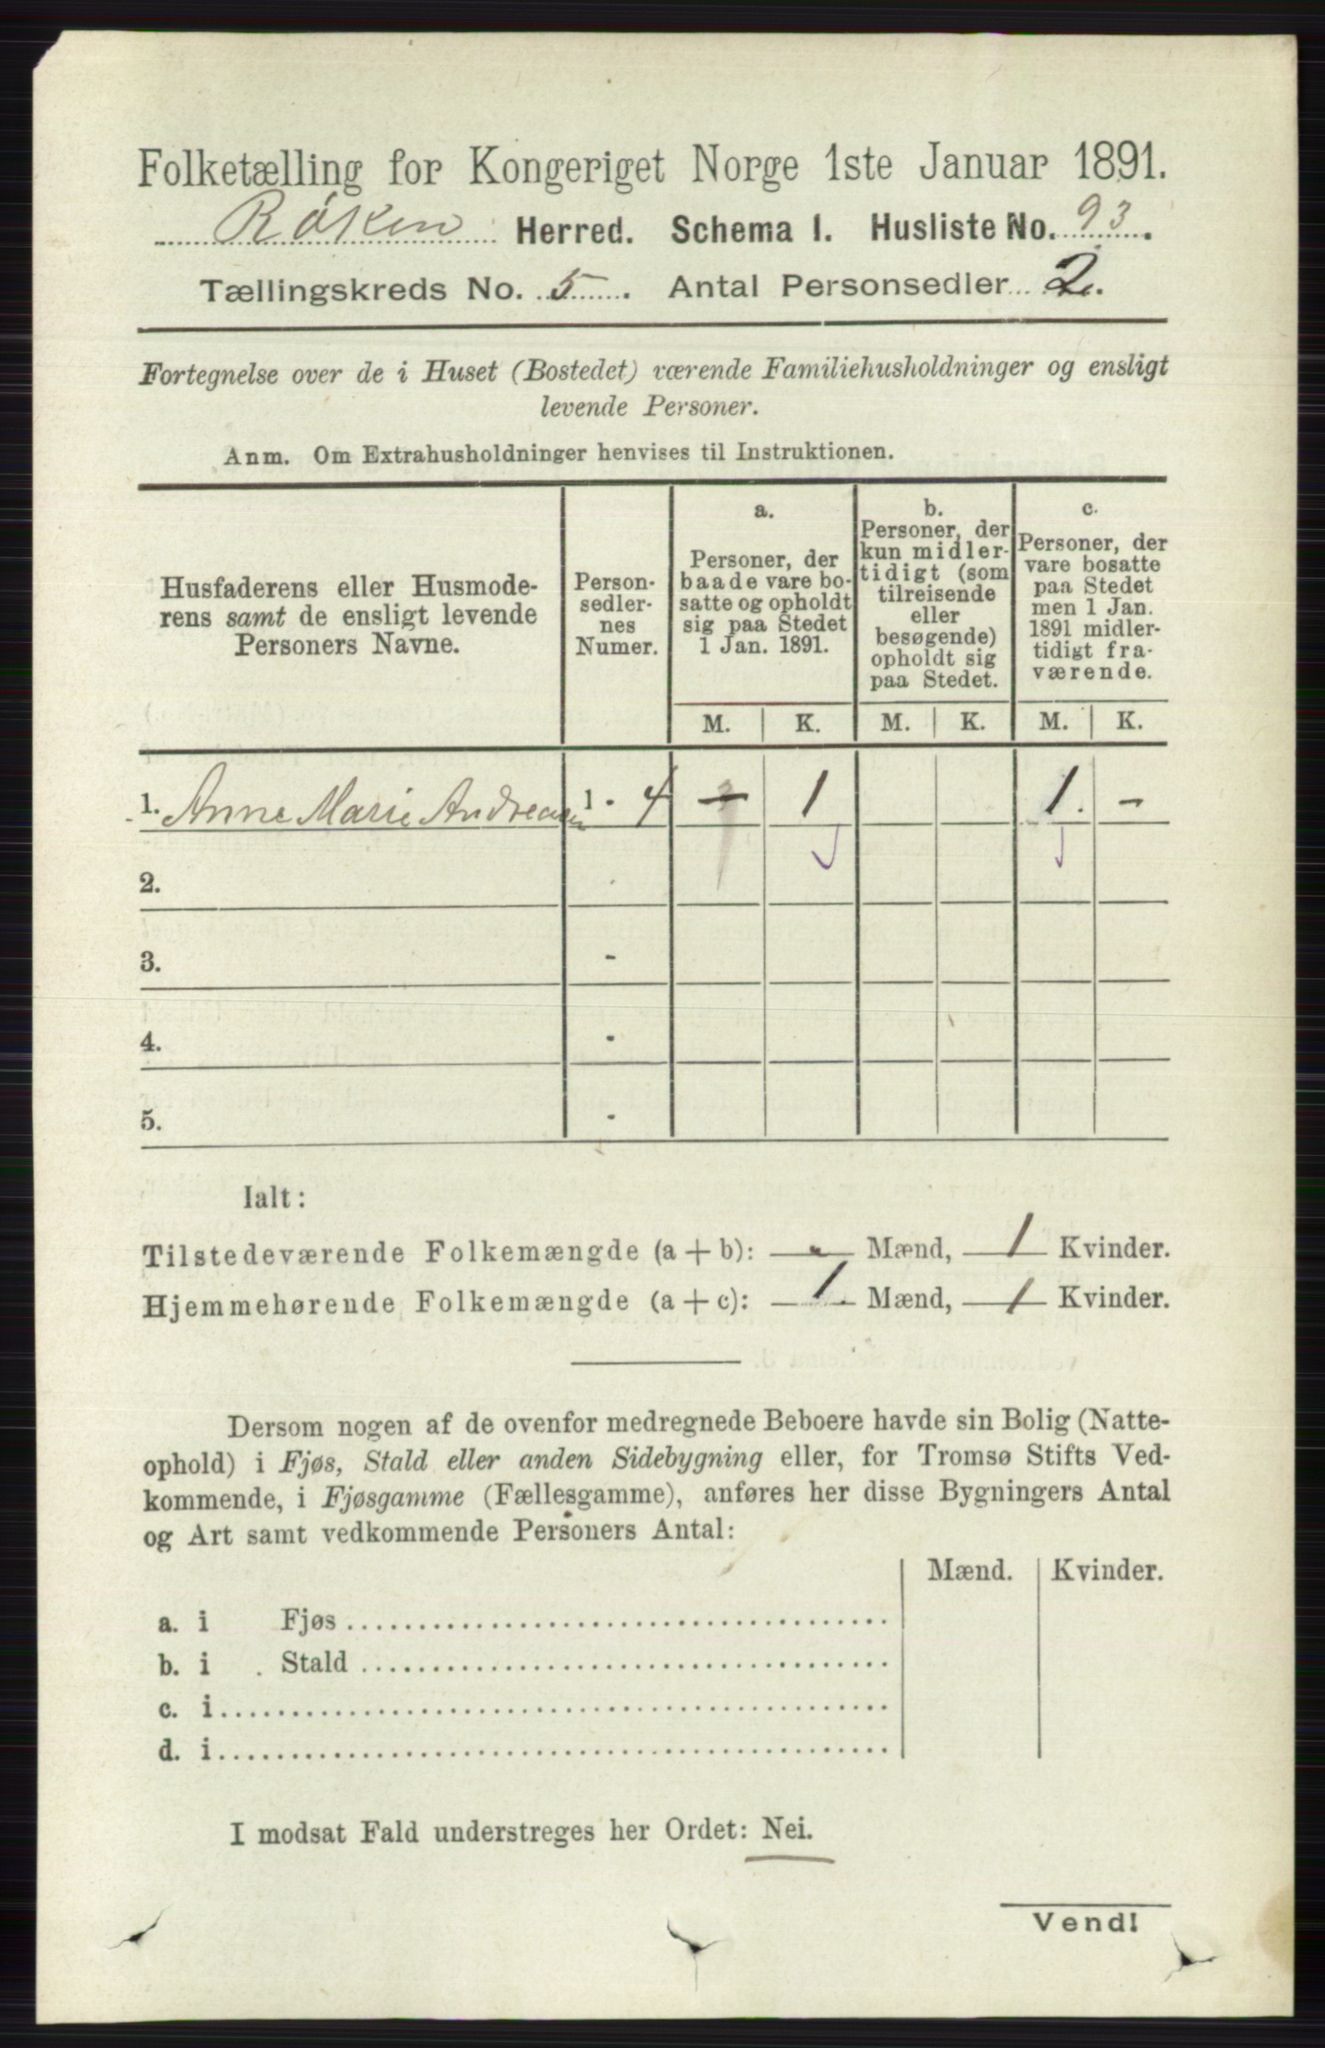 Folketælling for Kongeriget Norge 1ste Januar 1891.
Røken Herred. Schema I. Husliste No. 93.
Tællingskreds No. 5. Antal Personsedler 2.
Fortegnelse over de i Huset (Bostedet) værende Familiehusholdninger og ensligt
levende Personer.
Anm. Om Extrahusholdninger henvises til Instruktionen.
Husfaderens eller Husmode-
rens samt de ensligt levende
Personers Navne.
Person-
sedler-
nes
Numer.
a.
Personer, der
baade vare bo-
satte og opholdt
sig paa Stedet
1 Jan. 1891.
b.
Personer, der
kun midler-
tidigt (som
tilreisende
eller
besøgende)
opholdt sig
paa Stedet.
c.
Personer, der
vare bosatte
paa Stedet
men 1 Jan.
1891 midler-
tidigt fra-
værende.
M. K. M. K. M. K.
1. Anne Marie Andreasen 1 - 4 - 1 1. -
2. -
3. -
4. -
5. -
Ialt:
Tilstedeværende Folkemængde (a + b): - Mænd, 1 Kvinder.
Hjemmehørende Folkemængde (a + c): 1 Mænd, 1 Kvinder.
Dersom nogen af de ovenfor medregnede Beboere havde sin Bolig (Natte-
ophold) i Fjøs, Stald eller anden Sidebygning eller, for Tromsø Stifts Ved-
kommende, i Fjøsgamme (Fællesgamme), anføres her disse Bygningers Antal
og Art samt vedkommende Personers Antal:
Mænd. Kvinder.
a. i Fjøs
b. i Stald
c. i
d. i
I modsat Fald understreges her Ordet: Nei.
Vend!